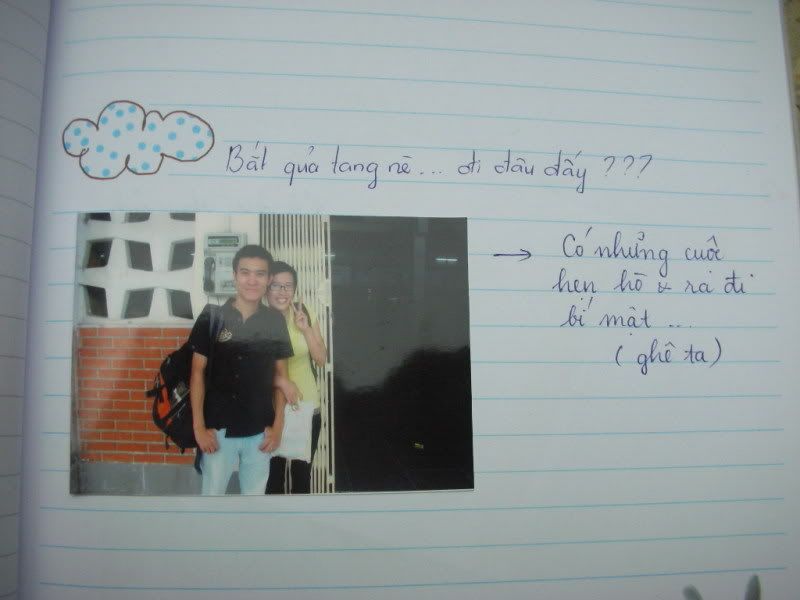 Bắt quả tang nè... đi đâu đấy ???
→ Có nhưng cuộc
hẹn hò & rả đi
bí mật ...
( ghê ta )